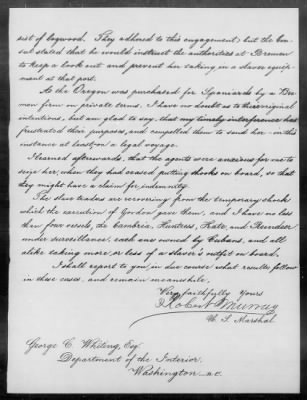 sist of logwood. They adhered to this engagement; but the Con-
sul stated that he would instruct the authorities at Bremen
to keep a look out and prevent her taking in a slaver equip-
ment at that port.
As the Oregon was purchased for Spaniards by a Bre-
men firm on private terms, I have no doubt as to their original
intentions, but am glad to say, that my timely interference has
frustrated their purposes, and compelled them to send her - in this
instance at least - on a legal voyage.
I learned afterwards, that the agents were anxious for me to
seize her, when they had ceased putting shooks on board, so that
they might have a claim for indemnity.
The slave traders are recovering from the temporary shock
which the execution of Gordon gave them, and I have no less
than four vessels, the Cambria, Huntress, Kate, and Reindeer
under surveillance, each one owned by Cubans, and all
alike taking more or less of a slaver's outfit on board.
I shall report to you in due course what results follow
in these cases, and remain meanwhile,
Very faithfully Yours
Robert Murray
U. S. Marshal
George C. Whiting, Esq
Department of the Interior,
Washington D.C.